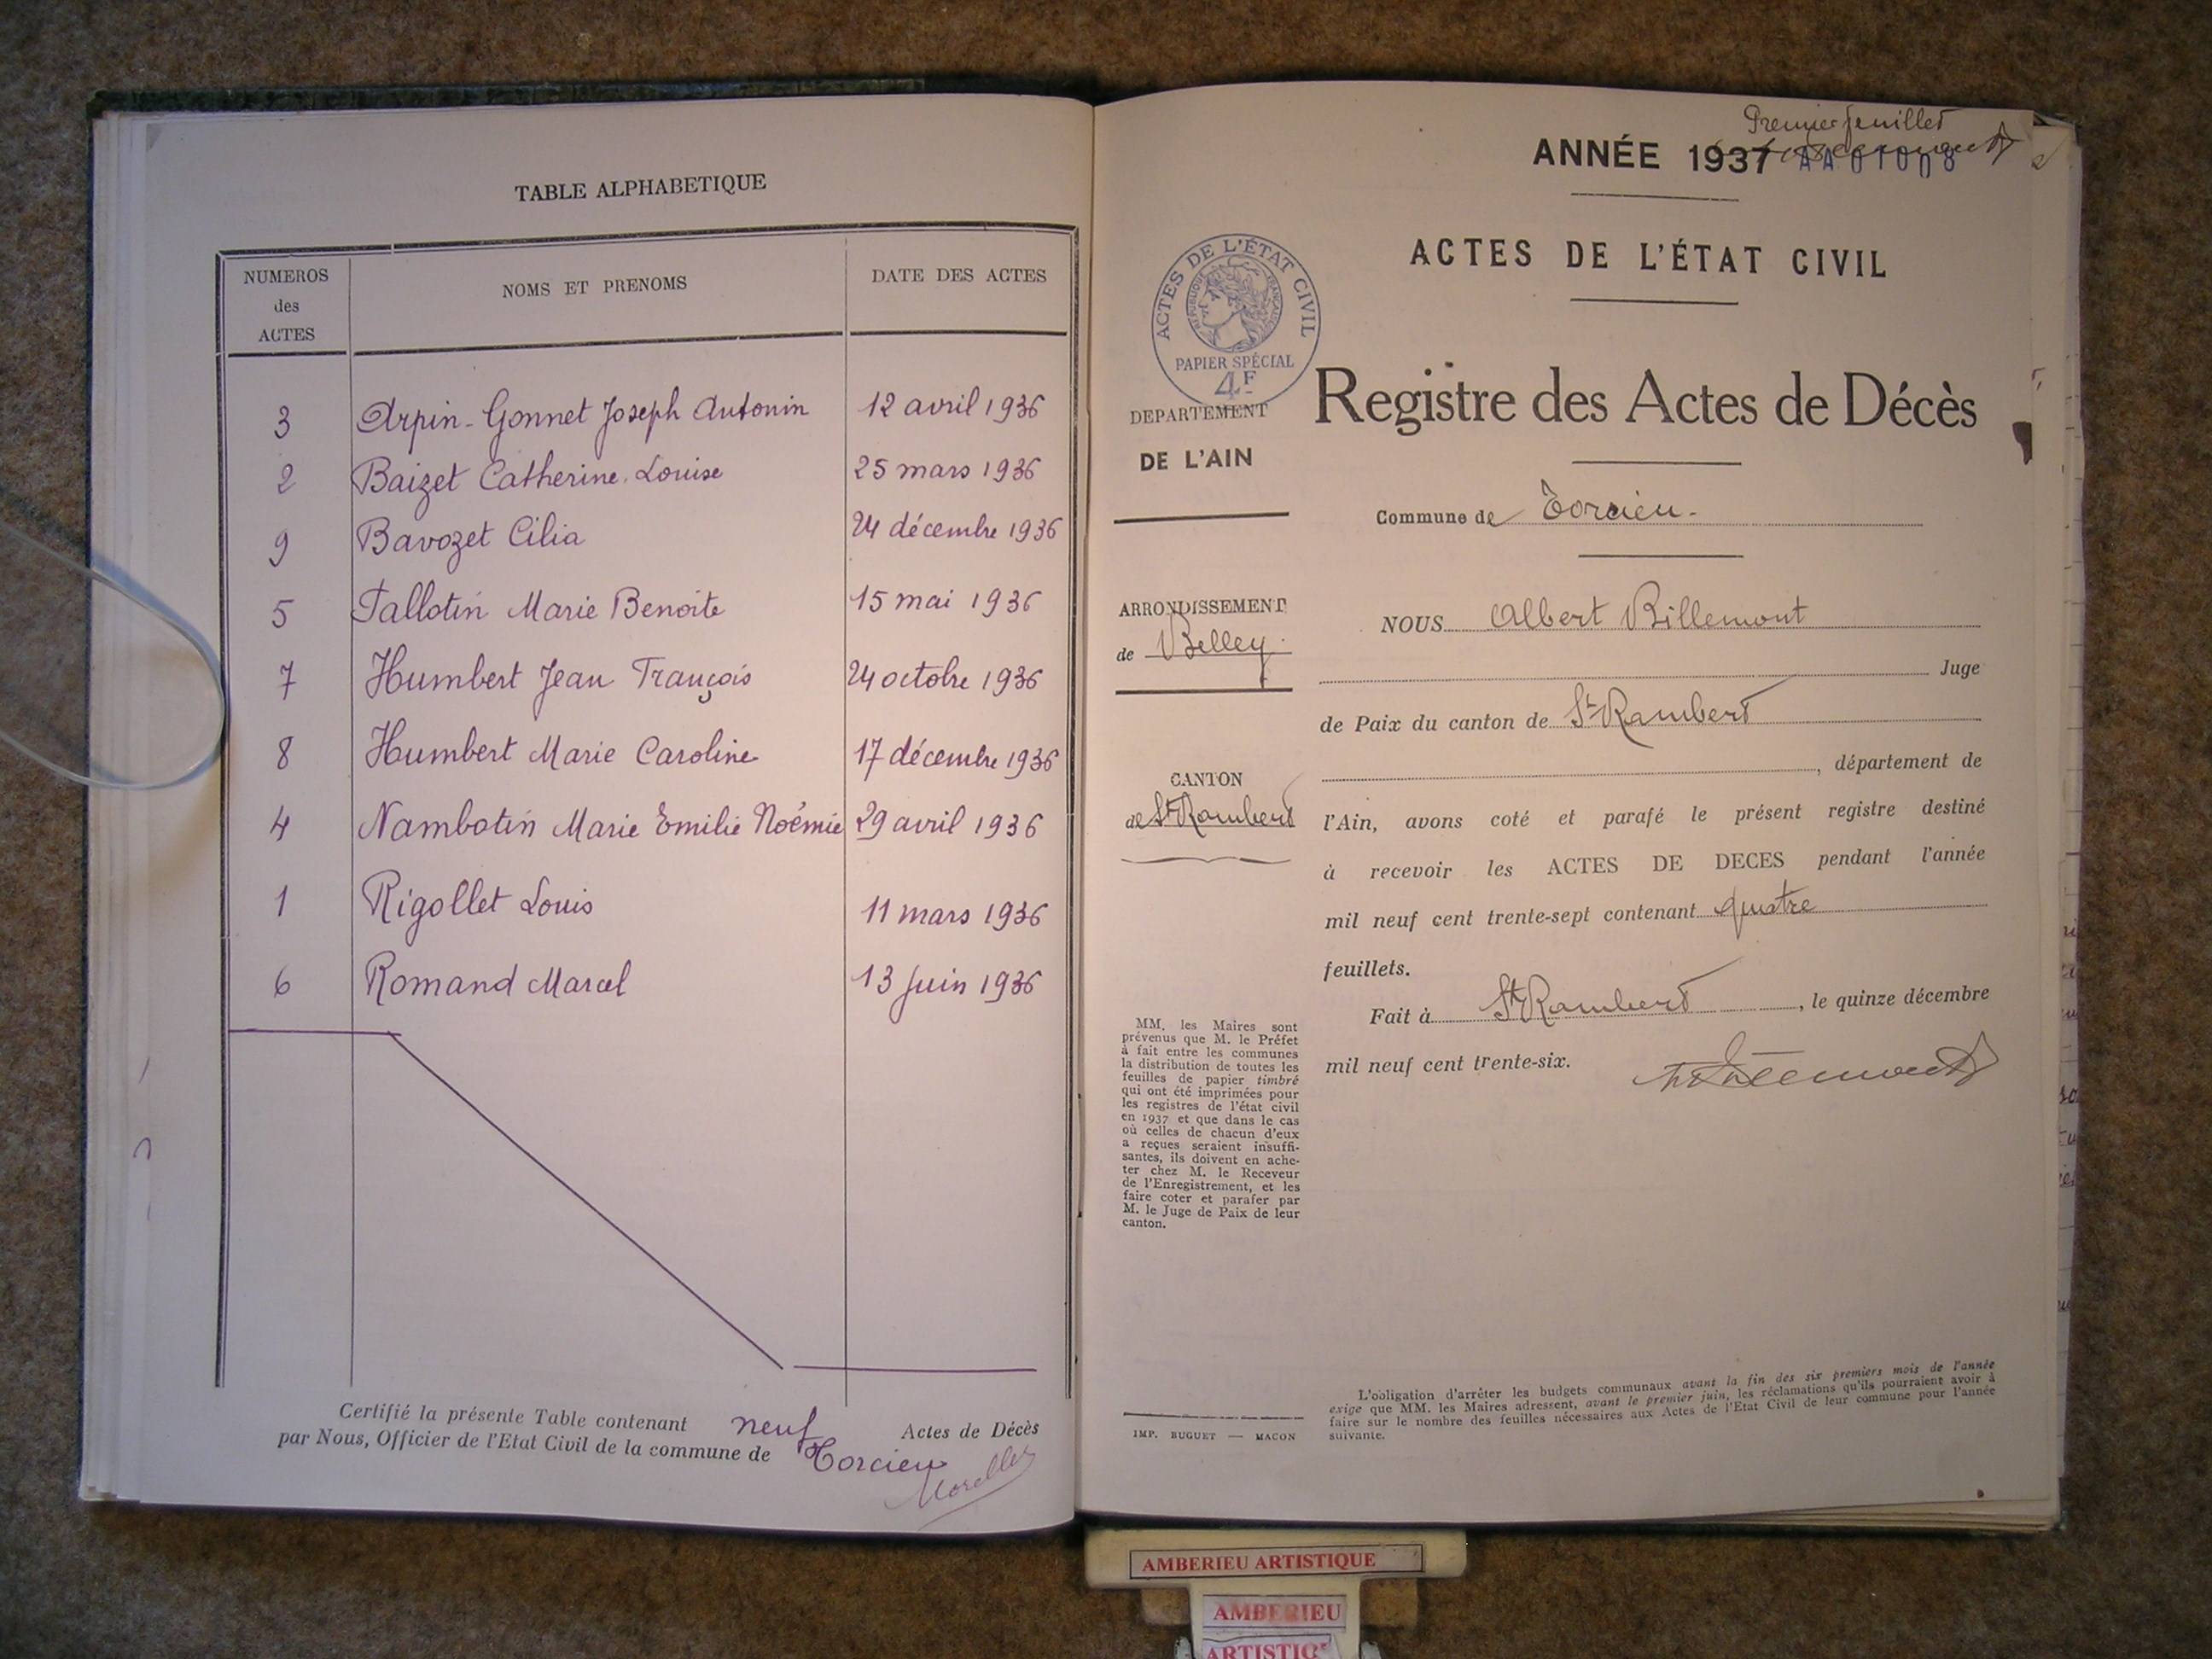 TABLE ALPHABETIQUE
NUMEROS
des
ACTES
NOMS ET PRENOMS
DATE DES ACTES
3 Arpin-Gonnet Joseph Antonin 12 avril 1936
2 Baizet Catherine Louise 25 mars 1936
9 Bavozet Cilia 24 décembre 1936
5 Fallotin Marie Benoite 15 mai 1936
7 Humbert Jean François 24 octobre 1936
8 Humbert Marie Caroline 17 décembre 1936
4 Nambotin Marie Emilie Noémie 29 avril 1936
1 Rigollet Louis 11 mars 1936
6 Romand Marcel 13 juin 1936
Certifié la présente Table contenant neuf Actes de Décès
par Nous, Officier de l'Etat Civil de la commune de Torcieu
Premier feuillet
ANNÉE 1937 AA 01008
ACTES DE L'ÉTAT CIVIL
ACTES DE L'ÉTAT CIVIL
RÉPUBLIQUE FRANÇAISE
PAPIER SPÉCIAL
4F
DEPARTEMENT
DE L'AIN
Registre des Actes de Décès
Commune de Torcieu.
ARRONDISSEMENT
de Belley.
CANTON
de St Rambert
NOUS Albert Billemont
Juge
de Paix du canton de St Rambert
, département de
l'Ain, avons coté et parafé le présent registre destiné
à recevoir les ACTES DE DECES pendant l'année
mil neuf cent trente-sept contenant quatre
feuillets.
Fait à St Rambert, le quinze décembre
mil neuf cent trente-six.
MM. les Maires sont
prévenus que M. le Préfet
à fait entre les communes
la distribution de toutes les
feuilles de papier timbré
qui ont été imprimées pour
les registres de l'état civil
en 1937 et que dans le cas
où celles de chacun d'eux
a reçues seraient insuffi-
santes, ils doivent en ache-
ter chez M. le Receveur
de l'Enregistrement, et les
faire coter et parafer par
M. le Juge de Paix de leur
canton.
IMP. BUGUET — MACON
L'obligation d'arrêter les budgets communaux avant la fin des six premiers mois de l'année
exige que MM. les Maires adressent, avant le premier juin, les réclamations qu'ils pourraient avoir à
faire sur le nombre des feuilles nécessaires aux Actes de l'Etat Civil de leur commune pour l'année
suivante.
AMBERIEU ARTISTIQUE
AMBERIEU